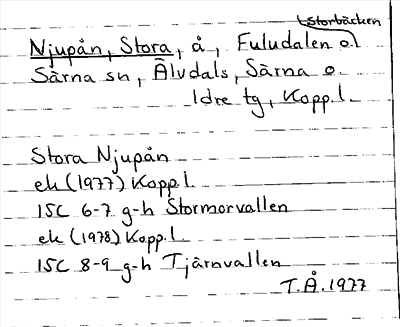 Storbäcken
Njupån, Stora, å, Fuludalen o.
Särna sn, Älvdals, Särna o.
Idre tg, Kopp.l.
Stora Njupån
ek (1977) Kopp.l.
15C 6-7 g-h Stormorvallen
ek (1978) Kopp.l.
15C 8-9 g-h Tjärnvallen
T.Å. 1977